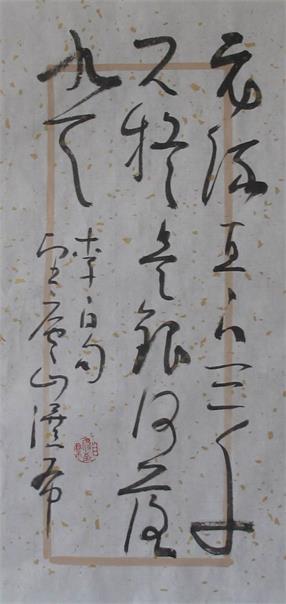 飛流直下三千
尺疑是銀河落
九天
李白句
望廬山瀑布